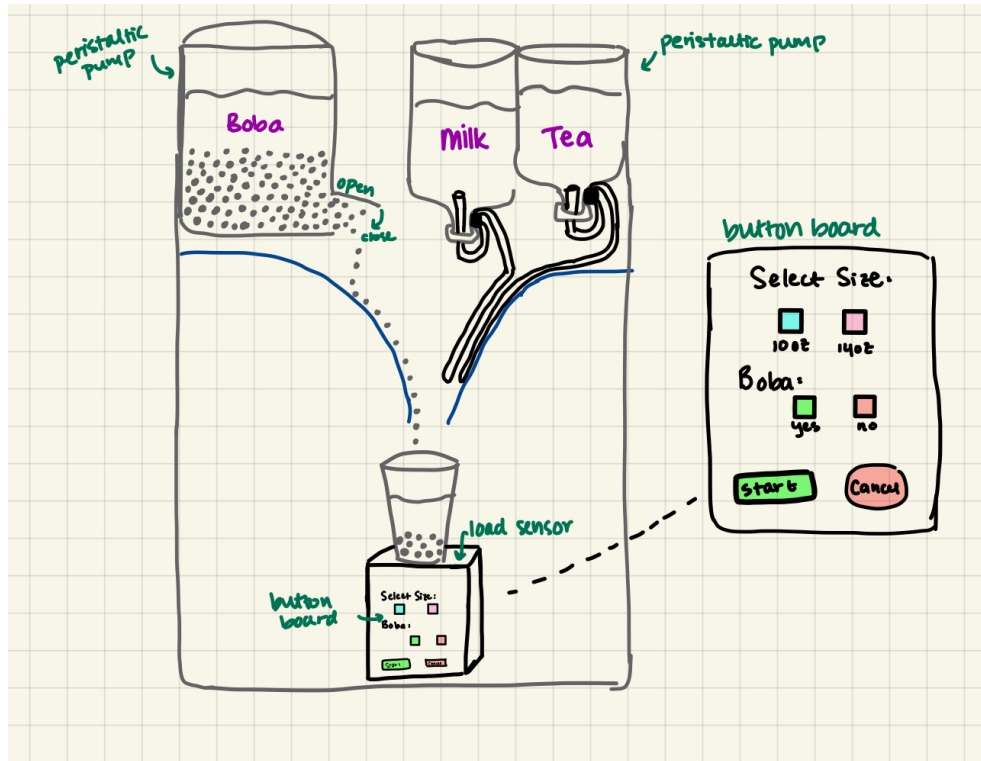 peristaltic
pump
peristaltic pump
Boba
Milk
Tea
open
close
button board
Select Size:
10oz
14oz
Boba:
yes
no
Start
Cancel
load sensor
button
board
Select Size:
Boba:
Start
Cancel